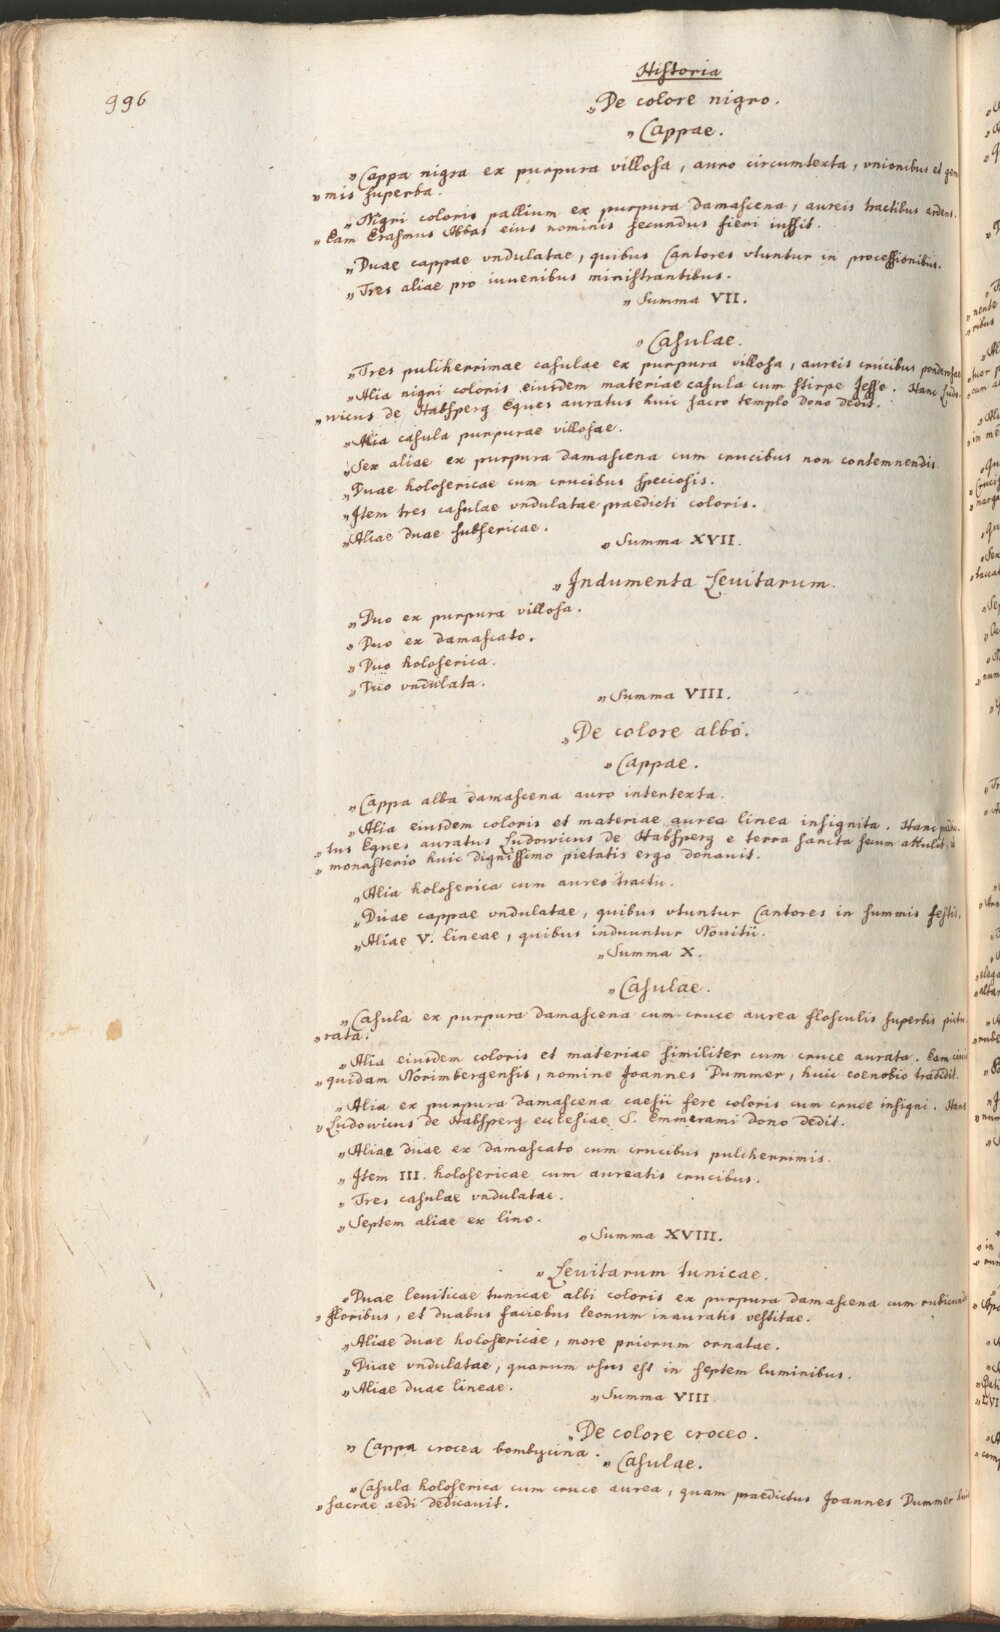 Historia
996
„De colore nigro.
„Cappae.
„Cappa nigra ex purpura villosa, auro circumtexta, vnionibus et gem
„mis superba.
„Nigri coloris pallium ex purpura damascena, aureis tractibus ardens.
„Eam Erasmus Abbas eius nominis secundus fieri iussit.
„Duae cappae vndulatae, quibus Cantores vtuntur in processionibus.
„Tres aliae pro iuuenibus ministrantibus.
„Summa VII.
„Casulae.
„Tres pulcherrimae casulae ex purpura villosa, aureis crucibus ponderosae
„Alia nigri coloris eiusdem materiae casula cum stirpe Jesse. Hanc Ludo-
„uicus de Habsperg Eques auratus huic sacro templo dono dedit.
„Alia casula purpurae villosae.
„Sex aliae ex purpura damascena cum crucibus non contemnendis.
„Duae holosericae cum crucibus speciosis.
„Item tres casulae vndulatae praedicti coloris.
„Aliae duae subsericae.
„Summa XVII.
„Indumenta Leuitarum.
„Duo ex purpura villosa.
„Duo ex damascato.
„Duo holoserica.
„Duo vndulata.
„Summa VIII.
„De colore albo.
„Cappae.
„Cappa alba damascena auro intertexta.
„Alia eiusdem coloris et materiae aurea linea insignita. Hanc
„tus Eques auratus Ludowicus de Habsperg e terra sancta secum attulit,
„monasterio huic dignissimo pietatis ergo donauit.
„Alia holoserica cum aureo tractu.
„Duae cappae vndulatae, quibus vtuntur Cantores in summis festis.
„Aliae V. lineae, quibus induuntur Nouitii.
„Summa X.
„Casulae.
„Casula ex purpura damascena cum cruce aurea flosculis superbis pictu-
„rata.
„Alia eiusdem coloris et materiae similiter cum cruce aurata. Eam ciuis
„quidam Norimbergensis, nomine Joannes Dummer, huic coenobio tradidit.
„Alia ex purpura damascena caesii fere coloris cum cruce insigni. Hanc
„Ludowicus de Habsperg ecclesiae S. Emmerami dono dedit.
„Aliae duae ex damascato cum crucibus pulcherrimis.
„Item III. holosericae cum aureatis crucibus.
„Tres casulae vndulatae.
„Septem aliae ex lino.
„Summa XVIII.
„Leuitarum tunicae.
„Duae leuiticae tunicae albi coloris ex purpura damascena cum rubicundis
„floribus, et duabus faciebus leonum inauratis vestitae.
„Aliae duae holosericae, more priorum ornatae.
„Duae vndulatae, quarum vsus est in septem luminibus.
„Aliae duae lineae.
„Summa VIII
„De colore croceo.
„Cappa crocea bombycina.
„Casulae.
„Casula holoserica cum cruce aurea, quam praedictus Joannes Dummer huic
„sacrae aedi dedicauit.